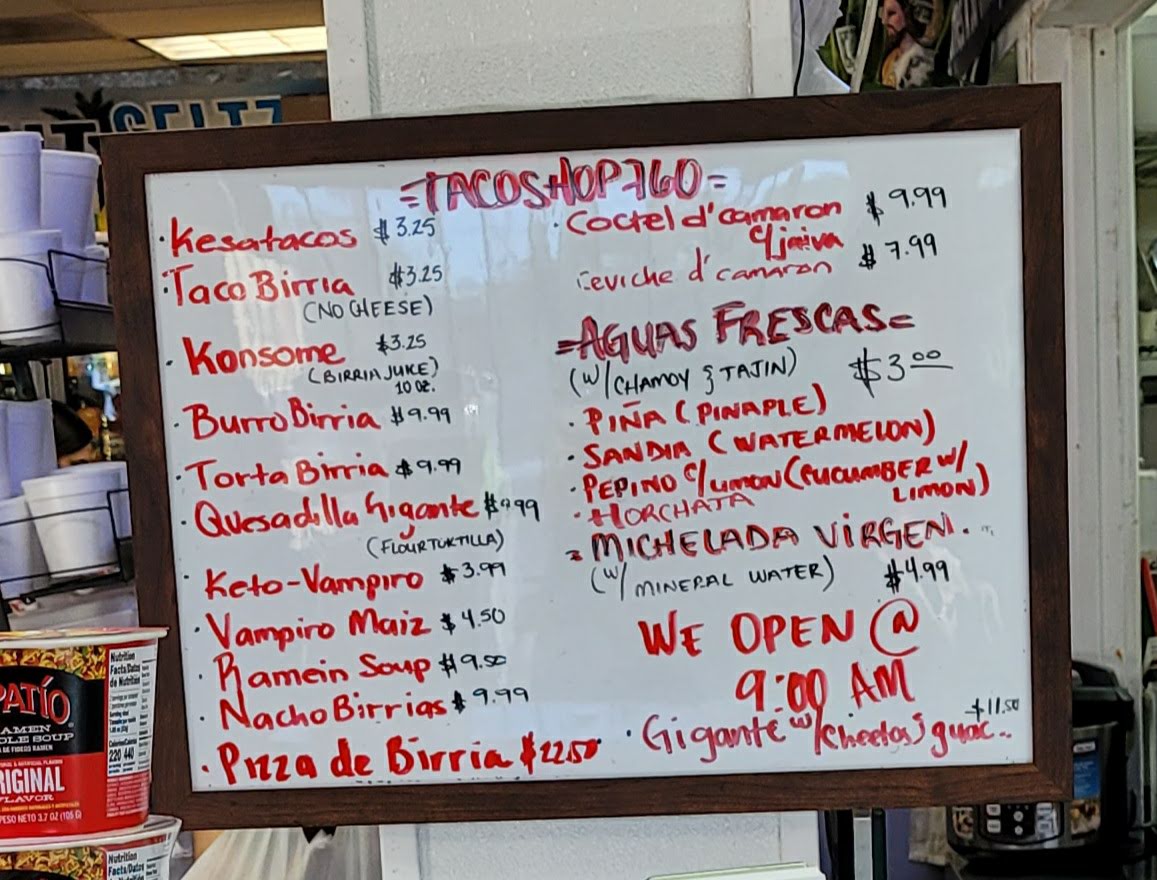 =TACOSHOP760=
· Kesatacos $3.25
· Taco Birria $3.25
(NO CHEESE)
· Konsome $3.25
(BIRRIA JUICE)
10 oz.
· Burro Birria $9.99
· Torta Birria $9.99
· Quesadilla Gigante $9.99
(FLOUR TORTILLA)
· Keto-Vampiro $3.99
· Vampiro Maiz $4.50
· Ramein Soup $9.50
· Nacho Birrias $9.99
· Pizza de Birria $22.50
· Coctel d'camaron $9.99
c/jaiva
ceviche d'camaron $7.99
=AGUAS FRESCAS=
(W/CHAMOY & TAJIN) $3.00
· PIÑA (PINAPLE)
· SANDIA (WATERMELON)
· PEPINO c/LIMON (CUCUMBER W/
LIMON)
· HORCHATA
MICHELADA VIRGEN.
(W/ MINERAL WATER) $4.99
WE OPEN @
9:00 AM
· Gigante w/cheetos & guac.. $11.50
SELTZ
PATÍO
ORIGINAL
FLAVOR
PESO NETO 3.7 OZ (105 G)
Nutrition
Facts/Datos
de Nutrición
220 440
Nutrition
Facts/Datos